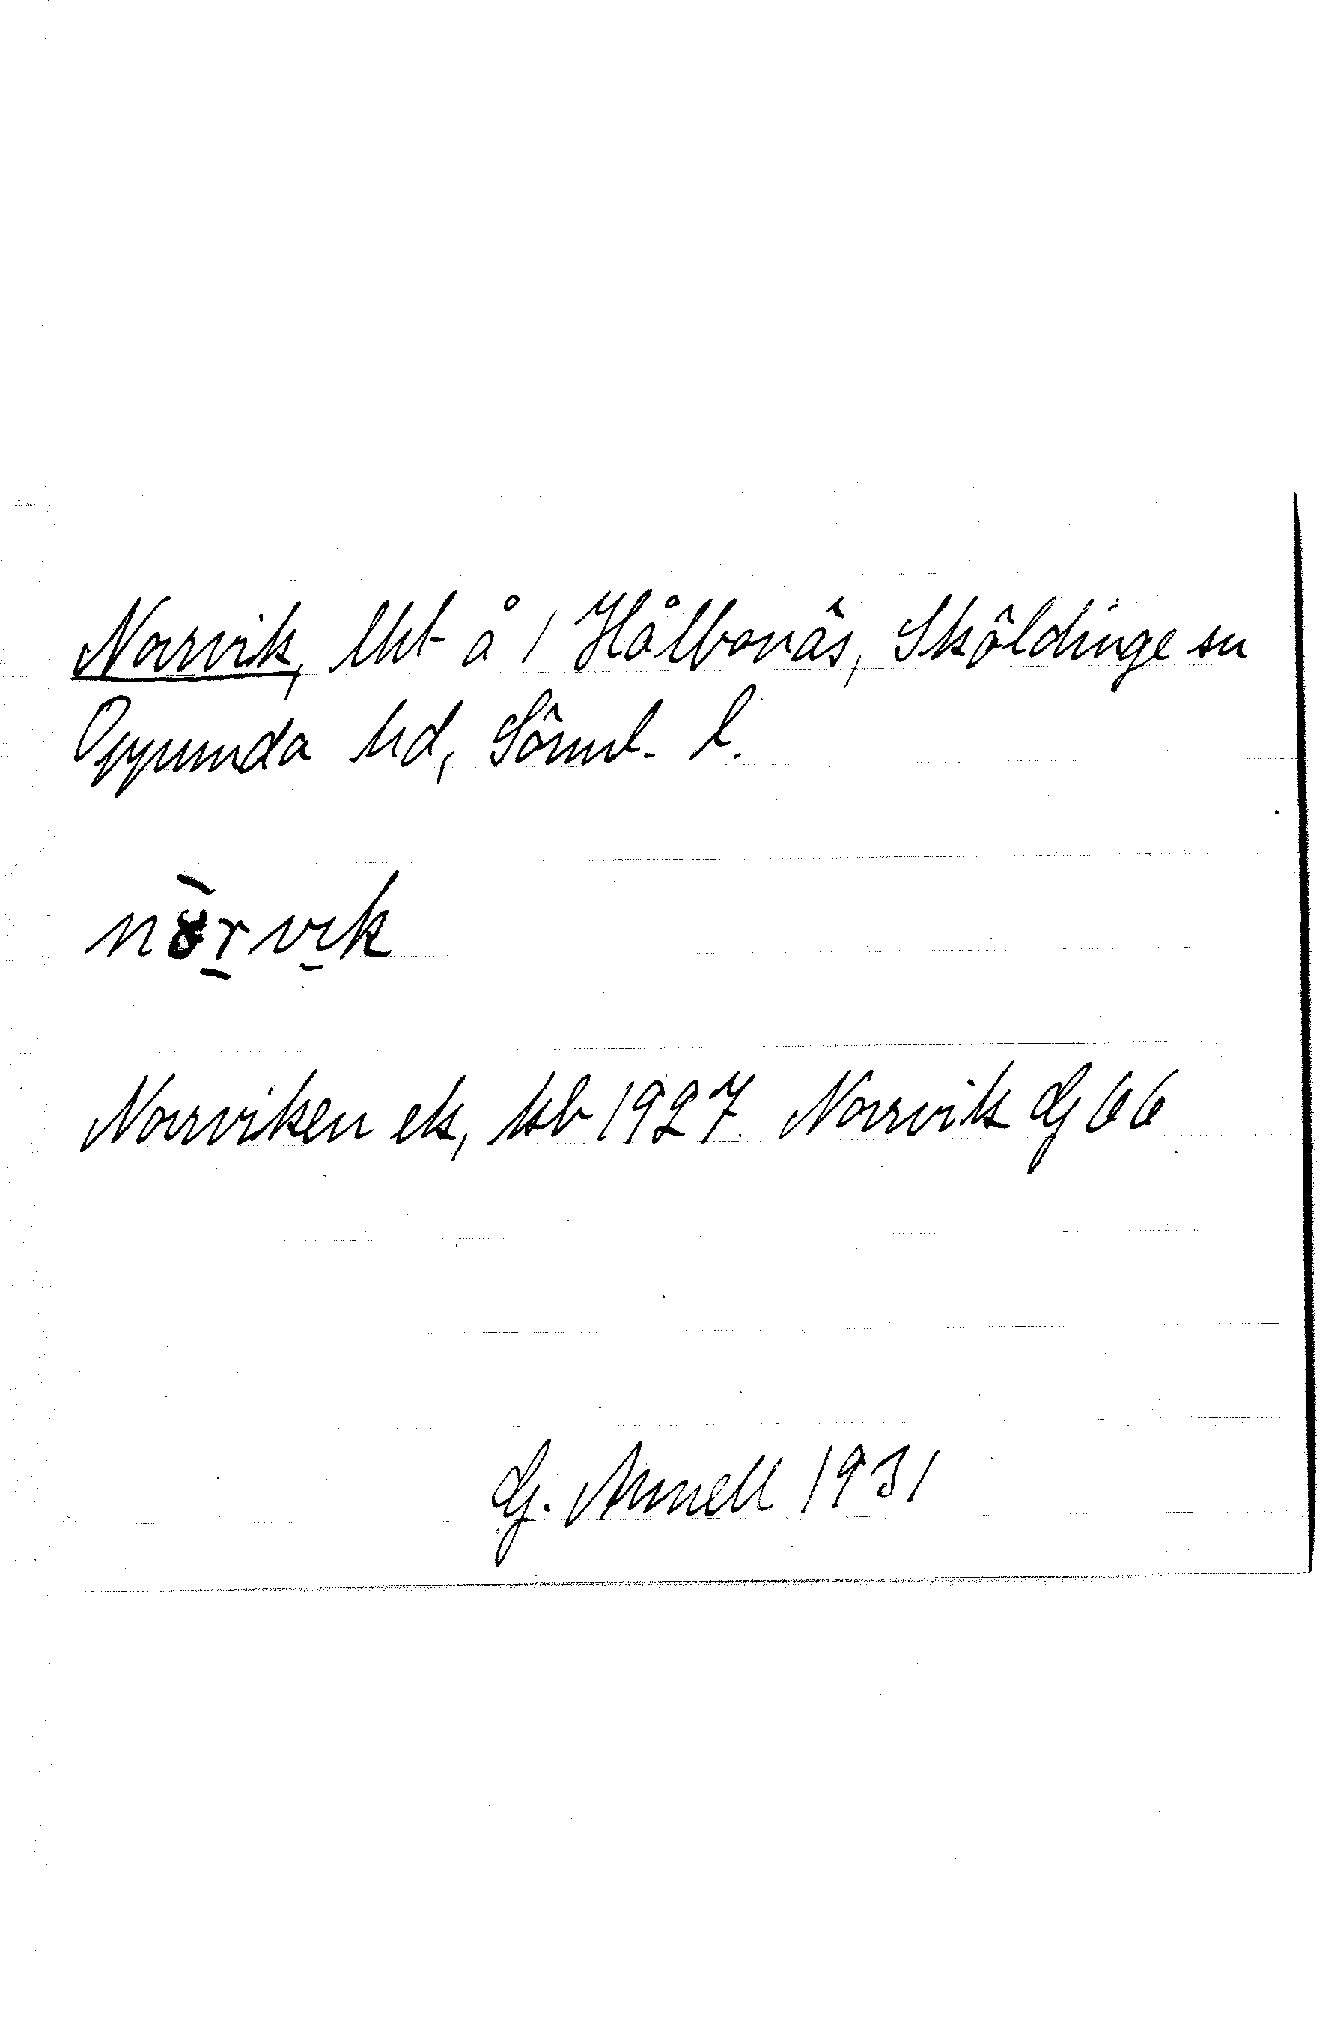 Norrvik, lht å 1 Hålbonäs, Sköldinge sn
Oppunda hd, Söml. l.
nòrvik
Norrviken ek, kb 1927 Norrvik G 66
G. Annell 1931